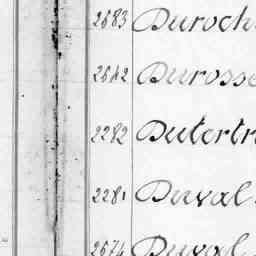 2683 Duroch
2642 Durosse
2282 Dutertr
2281 Duval
2674 Duval